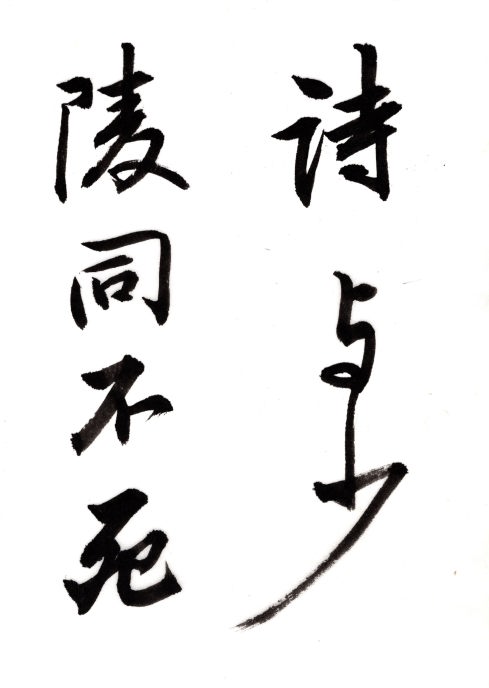 詩与少
陵同不死